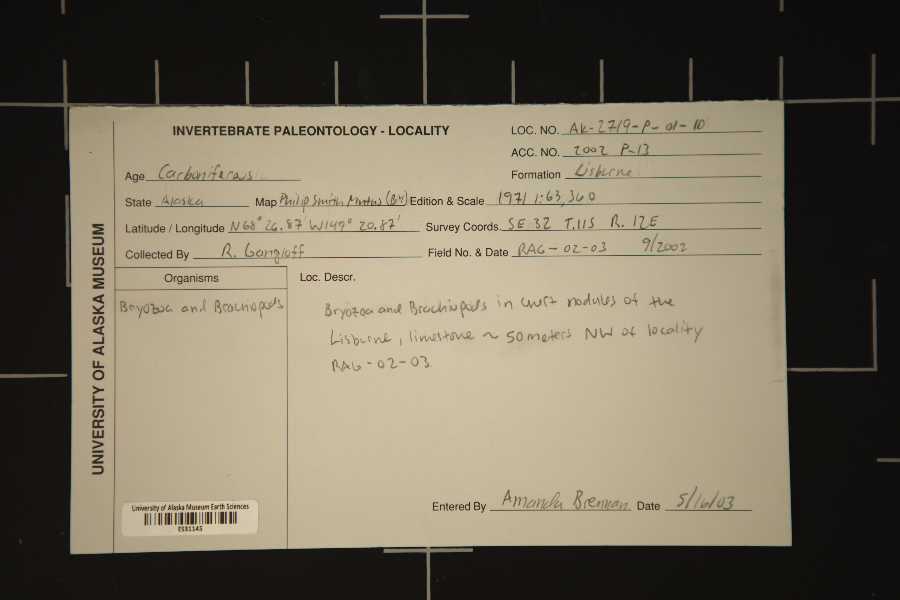 INVERTEBRATE PALEONTOLOGY - LOCALITY
LOC. NO. AK-2719-P-01-10
ACC. NO. 2002 P-13
Age Carboniferous
Formation Lisburne
State Alaska Map Philip Smith Mntns (B4) Edition & Scale 1971 1:63,360
Latitude / Longitude N68° 26.87' W149° 20.87' Survey Coords. SE 32 T.11S R. 12E
Collected By R. Gangloff Field No. & Date RAG-02-03 9/2002
Organisms
Bryozoa and Brachiopods
Loc. Descr.
Bryozoa and Brachiopods in chert nodules of the
Lisburne, limestone ~ 50 meters NW of locality
RAG-02-03
Entered By Amanda Brennan Date 5/16/03
UNIVERSITY OF ALASKA MUSEUM
University of Alaska Museum Earth Sciences
ES31145